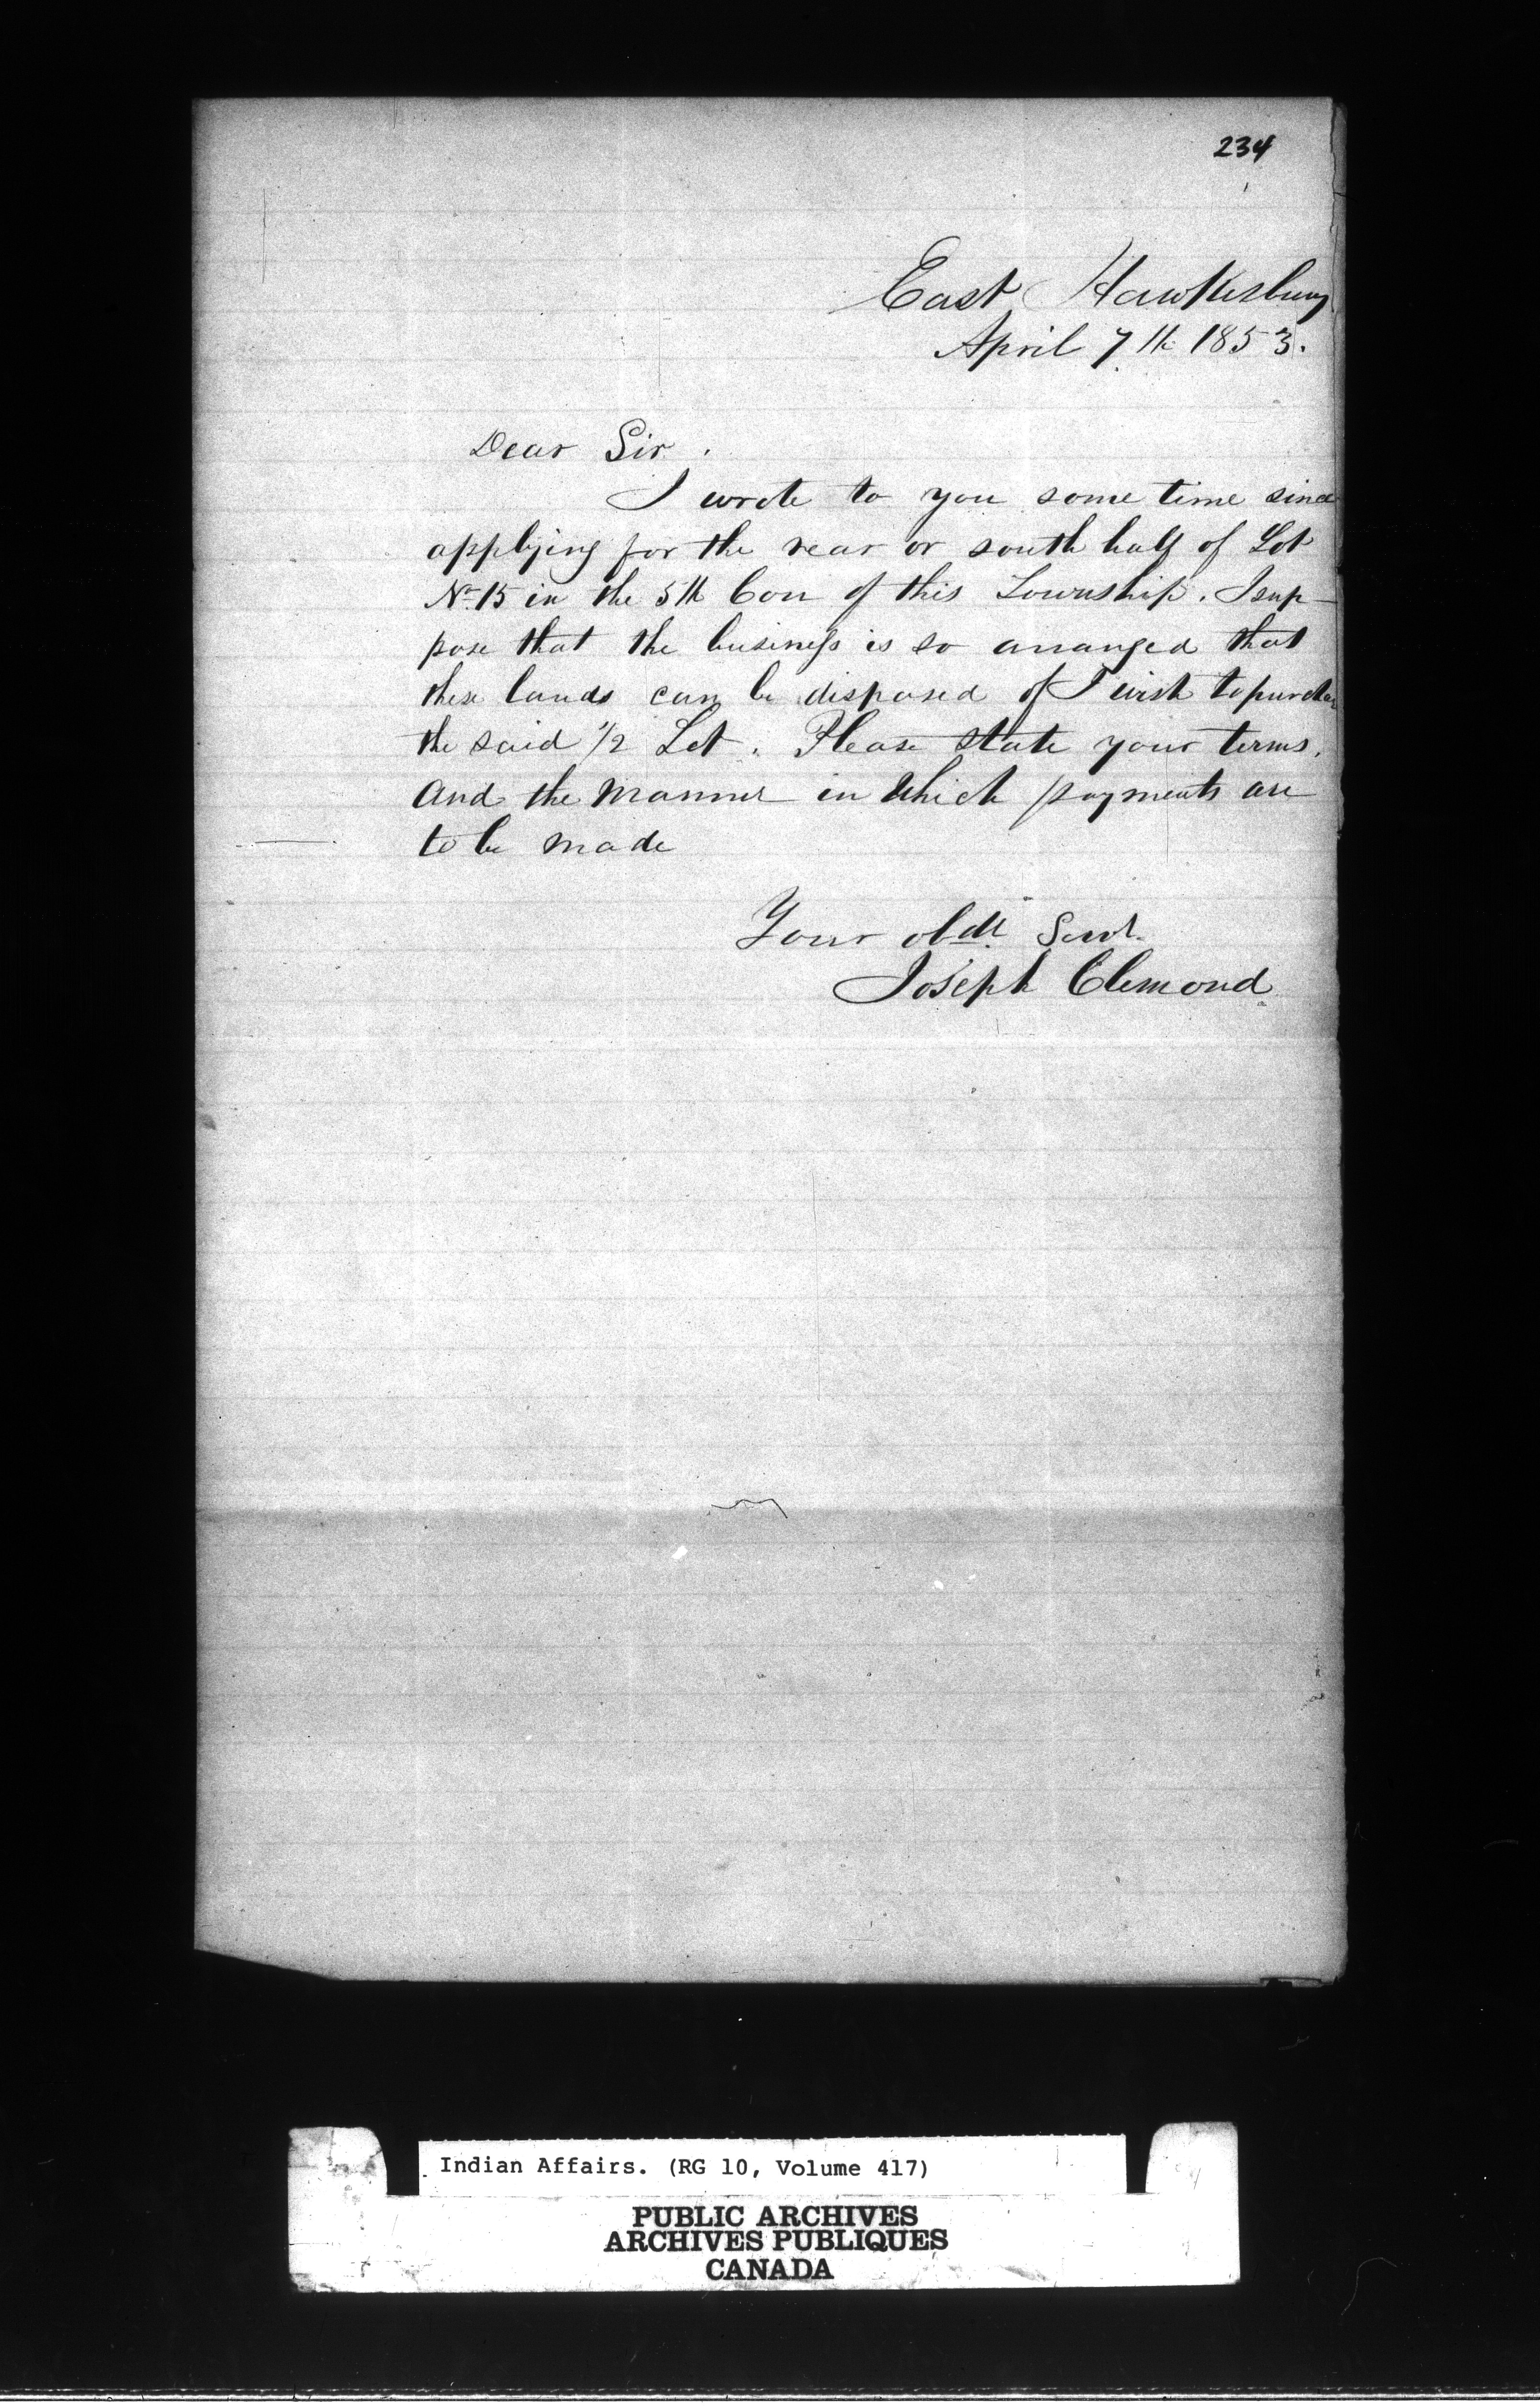 234
East Hawkesbury
April 7th 1853.
Dear Sir.
I wrote to you some time since
applying for the rear or south half of Lot
No 15 in the 5th Con of this Township. I sup-
pose that the business is so arranged that
these lands can be disposed of I wish to purchase
the said 1/2 Lot. Please state your terms.
and the manner in which payments are
to be made
Your obdt Servt.
Joseph Clemond
Indian Affairs. (RG 10, Volume 417)
PUBLIC ARCHIVES
ARCHIVES PUBLIQUES
CANADA